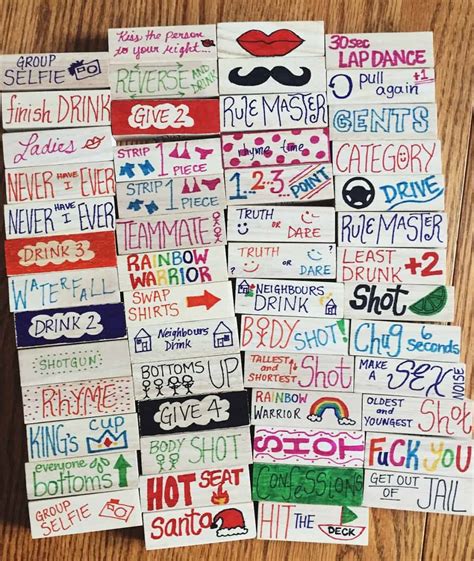 GROUP
SELFIE
finish DRINK
Ladies
NEVER HAVE I EVER
NEVER HAVE I EVER
DRINK 3
WATERFALL
DRINK 2
SHOTGUN
RHYME
KING'S CUP
everyone
bottoms
GROUP
SELFIE
Kiss the person
to your right...
REVERSE AND DRINK
GIVE 2
STRIP 1
PIECE
STRIP 1
PIECE
TEAMMATE
RAINBOW
WARRIOR
SWAP
SHIRTS
Neighbours
Drink
BOTTOMS UP
GIVE 4
BODY SHOT
HOT SEAT
Santa
RULE MASTER
rhyme time
1..2..3... POINT
TRUTH
OR DARE
? TRUTH ?
OR DARE
NEIGHBOURS
DRINK
BODY SHOT!
TALLEST
and
SHORTEST Shot
RAINBOW
WARRIOR
SHOT
CONFESSIONS
HIT THE DECK
30 sec
LAP DANCE
pull +1
again
GENTS
CATEGORY
DRIVE
RULE MASTER
LEAST
DRUNK +2
Shot
Chug 6
seconds
MAKE
A SEX NOISE
OLDEST
and
YOUNGEST Shot
FUCK YOU
GET OUT
OF JAIL